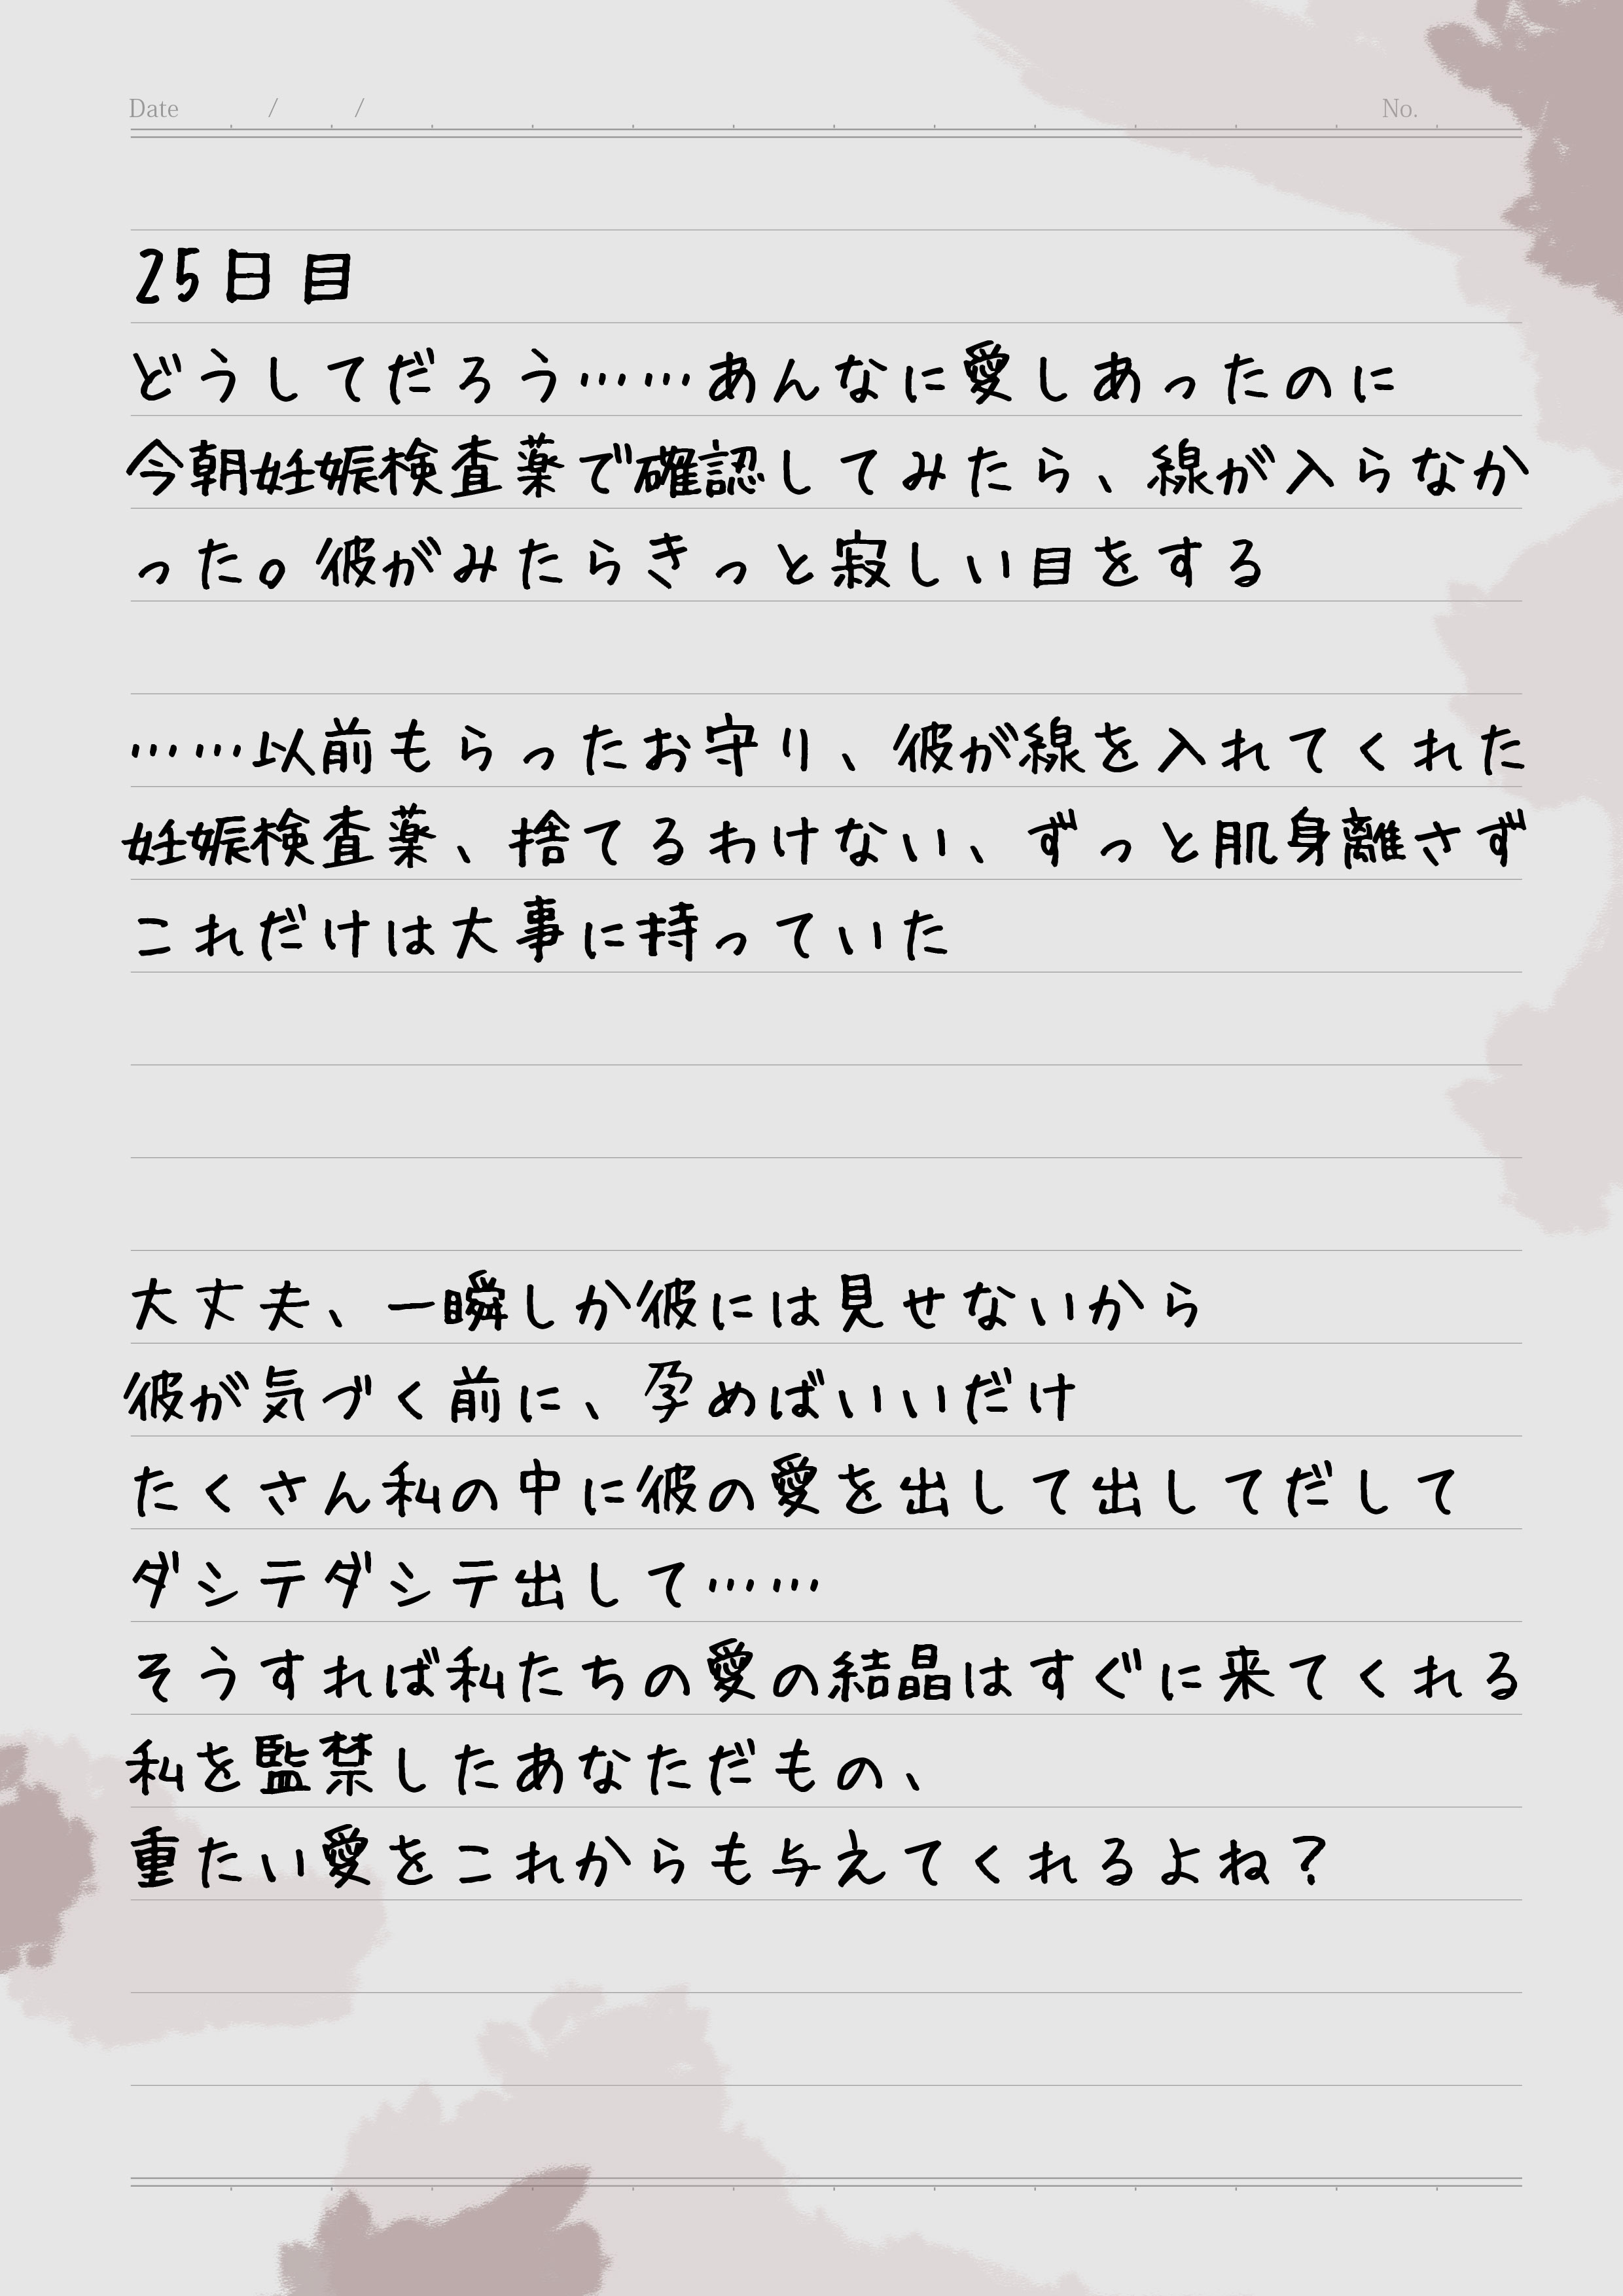 Date / / No.
25日目
どうしてだろう……あんなに愛しあったのに
今朝妊娠検査薬で確認してみたら、線が入らなか
った。彼がみたらきっと寂しい目をする
……以前もらったお守り、彼が線を入れてくれた
妊娠検査薬、捨てるわけない、ずっと肌身離さず
これだけは大事に持っていた
大丈夫、一瞬しか彼には見せないから
彼が気づく前に、孕めばいいだけ
たくさん私の中に彼の愛を出して出してだして
ダシテダシテ出して……
そうすれば私たちの愛の結晶はすぐに来てくれる
私を監禁したあなただもの、
重たい愛をこれからも与えてくれるよね?